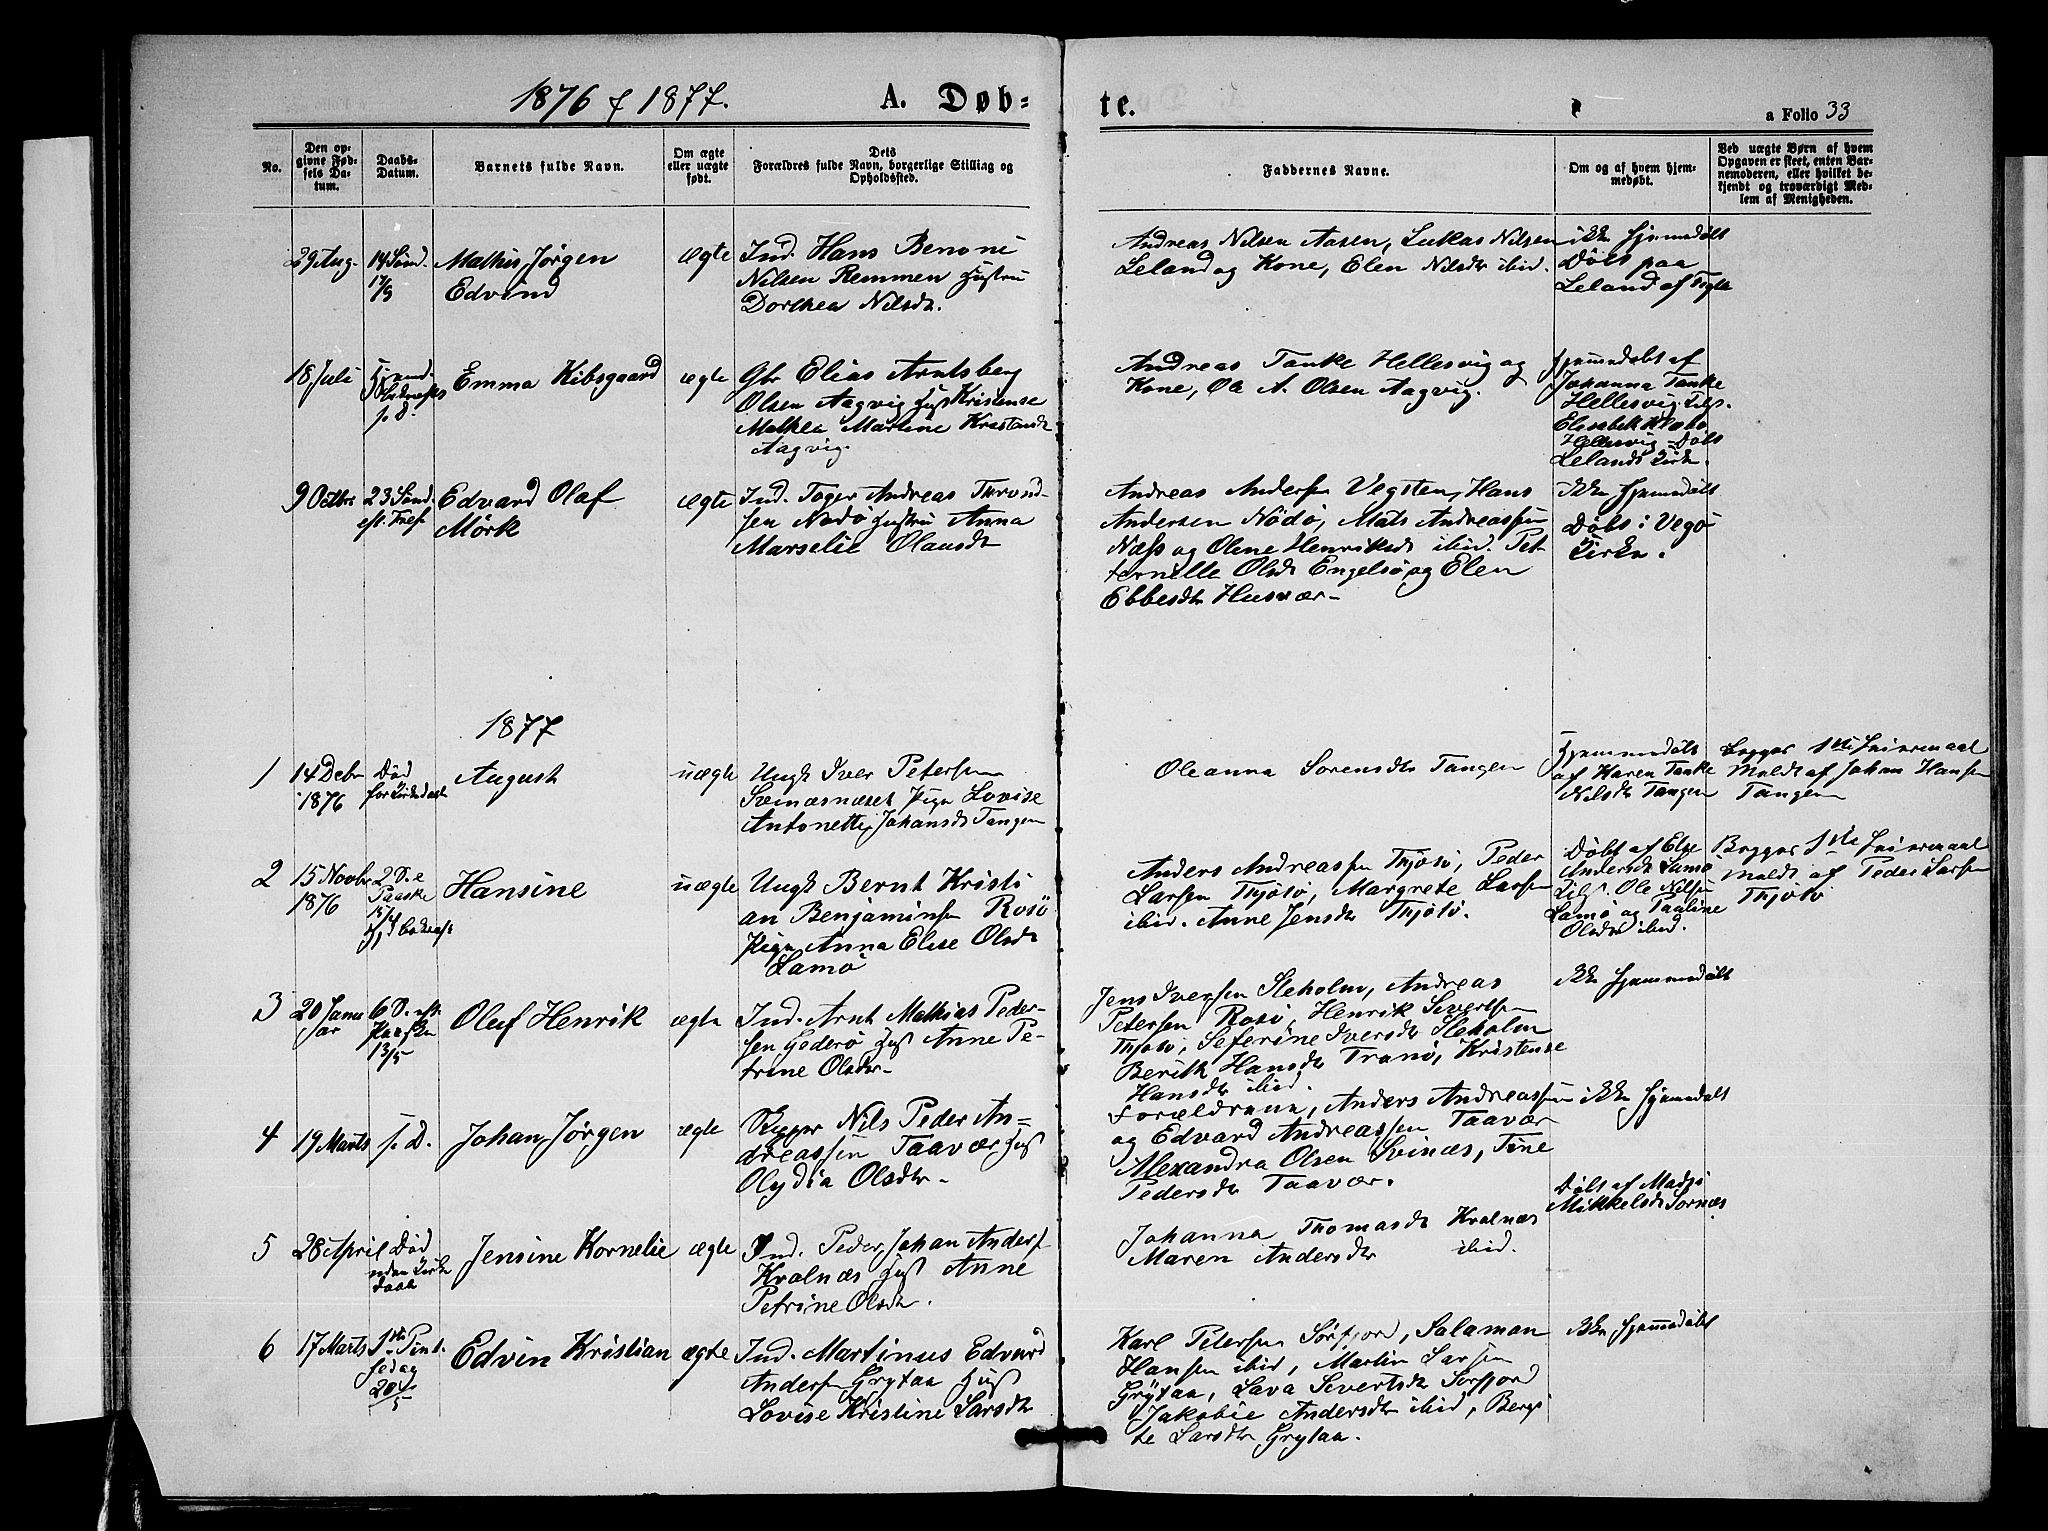 1876 & 1877.
A. Døb-
te.
a Folio 33
No.
Den op-
givne Fød-
sels Da-
tum.
Daabs-
Datum.
Barnets fulde Navn.
Om ægte
eller uægte
født.
Dets
Forældres fulde Navn, borgerlige Stilling og
Opholdssted.
Faddernes Navne.
Om og af hvem hjem-
medøbt.
Ved uægte Børn af hvem
Opgaven er skeet, enten Bar-
nemoderen, eller hvilket be-
kjendt og troværdigt Med-
lem af Menigheden.
29 Aug.
14 Sönd.
17/9
Mathis Jörgen
Edvind
ægte
Ind. Hans Benoni
Nilsen Remmen Hustru
Dorthea Nilsdr.
Andreas Nilsen Aasen, Lukas Nilsen
Leland og Kone, Elen Nilsdr ibid.
ikke hjemmedöbt
Döbt paa
Leland af
18 Juli
s. D.
Emma Kibsgaard
ægte
Gbr Elias Arntsberg
Olsen Aagvig Hust Kristense
Mathea Martine Kristensdr
Aagvig.
Andreas Tanke Hellesvig og
Kone, Ole A. Olsen Aagvig.
Hjemmedöbt af
Johanna Tanke
Hellesvig. Tils.
Elisabeth
Hellesvig - Döbt
Lelands Kirke.
9 Octbr
23 Sönd.
eft. Tref
Edvard Olaf
Mörk
ægte
Ind. Toger Andreas Trond-
sen Nödö Hustru Anna
Marselie Olausdr
Andreas Andersen Vegsten, Hans
Andersen Nödö, Mats Andreassen
Næss og Olene Henriksdr ibid. Pet-
ternille Olsdr Engelsö og Elen
Ebbesdr Husvær -
Ikke hjemmedöbt
Döbt i Vegö
Kirke.
1877
1
14 Debr
1876
Död
for Kirkedaab
August
uægte
Ungk Iver Petersen
Svinæsnæset Pige Lovise
Antonette Johansdr Tangen
Oleanna Sorensdr Tangen
Hjemmedöbt
af Karen Tanke
Nilsdr Tangen
Begges 1ste Leiermaal
Meldt af Johan Hansen
Tangen
2
15 Novbr
1876
2 S. e
Paaske
15/4
Hansine
uægte
Ungk Bernt Kristi
an Benjaminsen Rosö
Pige Anna Elise Olsdr
Lamö
Anders Andreassen Thjötö, Peder
Larsen Thjötö, Margrete Larsen
ibid. Anne Jensdr Thjötö.
Döbt af Else
Andersdr Lamö
Tils. Ole Nilsen
Lamö og Pauline
Olsdr ibid.
Begges 1ste Leiermaal
Meldt af Peder Larsen
Thjötö
3
20 Janu
ar
6 S. eft.
Paaske
13/5
Oluf Henrik
ægte
Ind. Arnt Mathias Peder-
sen Gederö Hust Anne Pe-
trine Olsdr -
Jens Iversen Sleholm, Andreas
Petersen Rosö, Henrik Severtsen
Thjötö, Seferine Iversdr Sleholm
Berith Hansdr Tranö, Kristense
Hansdr ibid.
Ikke hjemmedöbt
4
19 Marts
s. D.
Johan Jörgen
ægte
Nils Peder An-
dreassen Taavær Hust
Olydia Olsdr -
Forældrene, Anders Andreassen
og Edvard Andreassen Taavær
Alexandra Olsen Svinæs, Tine
Pedersdr Taavær.
ikke hjemmedöbt
5
28 April
Död
uden Kirke
daab
Jensine Kornelie
ægte
Ind. Peder Johan Anders.
Kvalnæs Hust Anne
Petrine Olsdr.
Johanna Thomasdr Kvalnæs
Maren Andersdr ibid.
Döbt af Madsi
Mikkelsdr Sornæs
6
17 Marts
1ste Pint-
sedag
20/5
Edvin Kristian
ægte
Ind. Martinus Edvard
Andersen Grytaa Hust
Lovise Kristine Larsdr
Karl Petersen Sörfjord, Salamon
Hansen ibid, Martin Larsen
Grytaa, Lava Severtsdr Sorfjord
Jakobie Andersdr ibid, Bergi
te Larsdr Grytaa.
Ikke hjemmedöbt